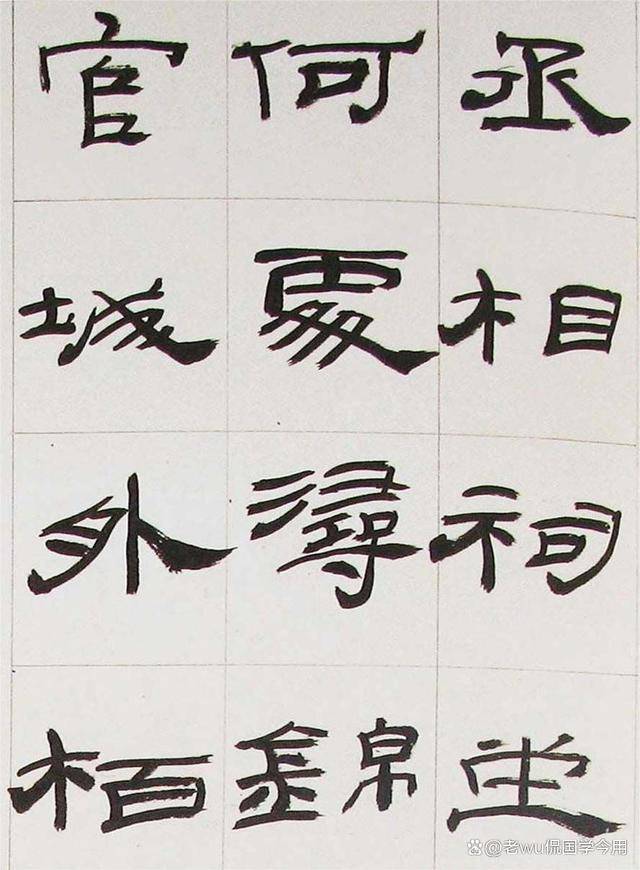 丞相祠堂
何處尋錦
官城外栢
@老wu侃国学今用